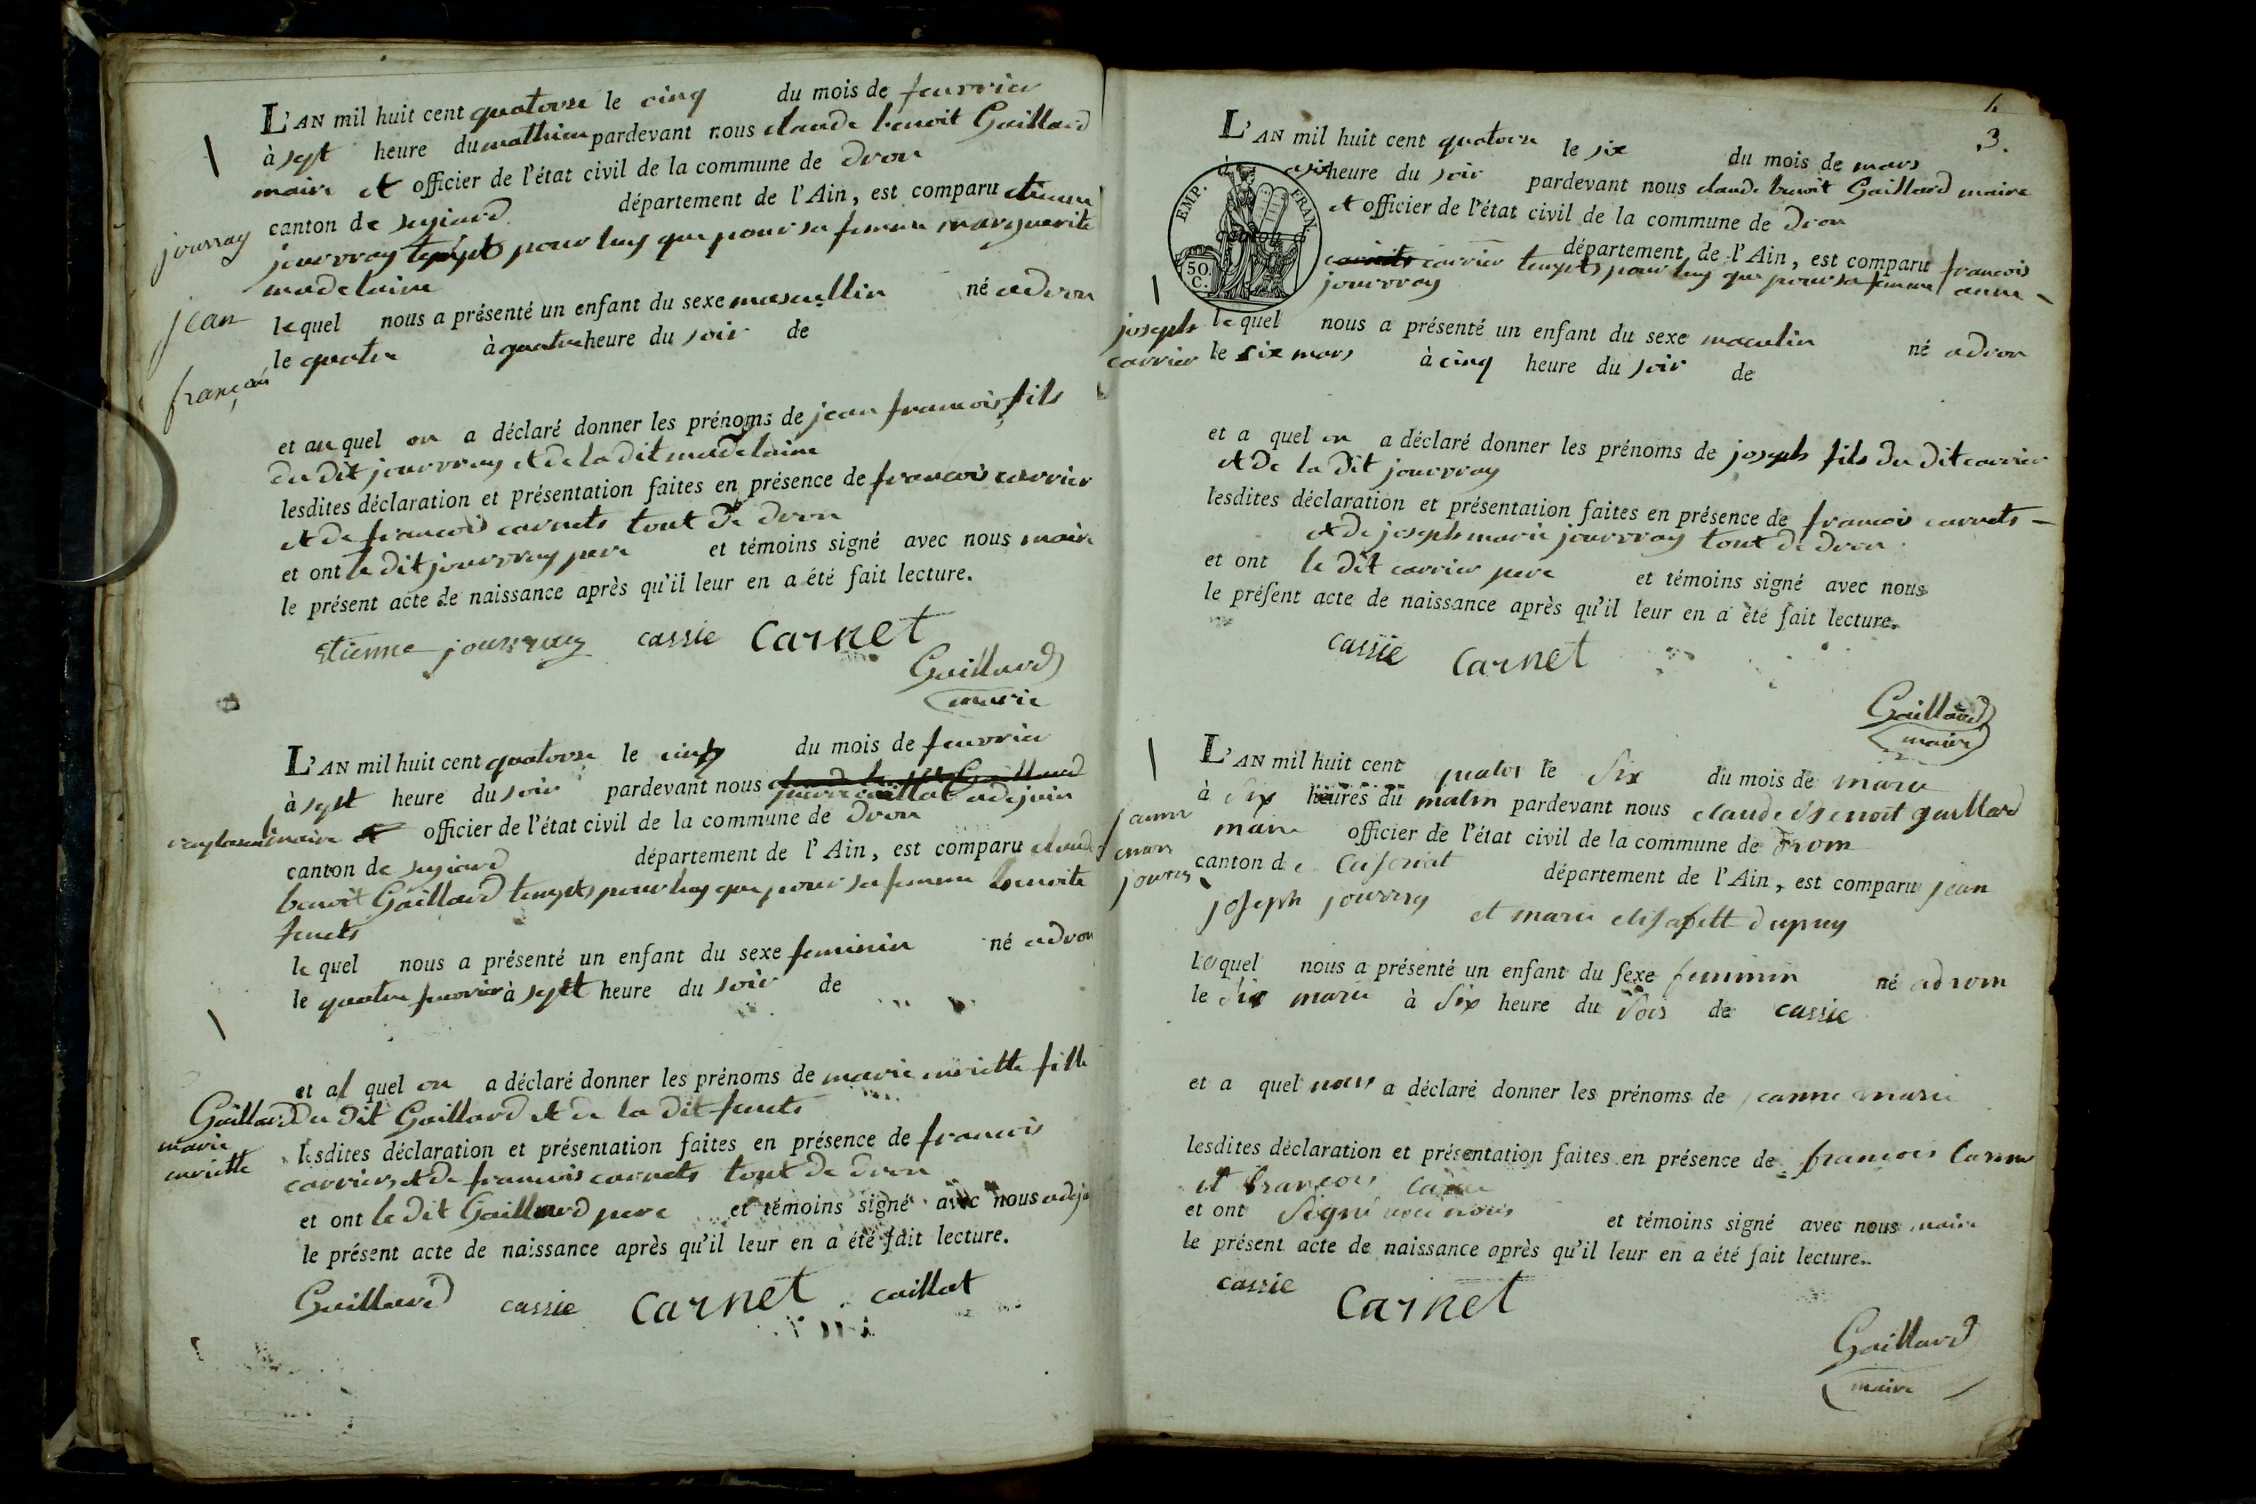 L'AN mil huit cent quatorse le cinq du mois de feuvrier
à sept heure du mathien pardevant nous claude benoit Gaillard
maire et officier de l'état civil de la commune de dron
canton de département de l'Ain, est comparu etienne
jourvray pour luy que pour sa femme marguerite
madelaine
lequel nous a présenté un enfant du sexe mascullin né a dron
le quatre à quatre heure du soir de
jourray
jean
françois
et au quel on a déclaré donner les prénoms de jean francois fils
du dit jourvray et de la dit madelaine
lesdites déclaration et présentation faites en présence de francois carrier
et de francois carnets tout de dron
et ont le dit jourvray pere et témoins signé avec nous maire
le présent acte de naissance après qu'il leur en a été fait lecture.
etienne jourvray cassie carnet
Gaillard
maire
L'AN mil huit cent quatorse le cinq du mois de feuvrier
à sept heure du soir pardevant nous claude benoit Gaillard
caillat adejoin
maire officier de l'état civil de la commune de dron
canton de département de l'Ain, est comparu claude
benoit Gaillard pour luy que pour sa femme benoite
feuets
le quel nous a présenté un enfant du sexe feminin né a dron
le quatre feuvrier à sept heure du soir de
et al quel on a déclaré donner les prénoms de marie enriette fille
du dit Gaillard et de la dit feuets
Gaillard
marie
enriette
lesdites déclaration et présentation faites en présence de francois
carrier et de francois carnets tout de dron
et ont le dit Gaillard pere et témoins signé avec nous adej
le présent acte de naissance après qu'il leur en a été fait lecture.
Gaillard cassie carnet caillat
3.
L'AN mil huit cent quatorse le six du mois de mars
à six heure du soir pardevant nous claude benoit Gaillard maire
et officier de l'état civil de la commune de dron
canton d département de l'Ain, est comparu francois
carrier pour luy que pour sa femme anne
jourvray
EMP. FRAN.
50. C.
joseph
carrier
lequel nous a présenté un enfant du sexe maculin né a dron
le six mars à cinq heure du soir de
et a quel on a déclaré donner les prénoms de joseph fils du dit carrier
et de la dit jourvray
lesdites déclaration et présentation faites en présence de francois carnets
et de joseph marie jourvray tout de dron
et ont le dit carrier pere et témoins signé avec nous
le présent acte de naissance après qu'il leur en a été fait lecture.
cassie carnet
Gaillard
maire
L'AN mil huit cent quator le six du mois de mars
à six heures du matin pardevant nous claude Benoit gaillard
maire officier de l'état civil de la commune de Drom
canton de département de l'Ain, est comparu jean
joseph jourvray et marie elisabett dupuy
lequel nous a présenté un enfant du sexe feminin né a drom
le six mars à six heure du soir de cassie
et a quel nous a déclaré donner les prénoms de janne marie
lesdites déclaration et présentation faites en présence de francois
et francois
et ont signé avec nous et témoins signé avec nous maire
le présent acte de naissance après qu'il leur en a été fait lecture.
cassie
carnet
Gaillard
maire